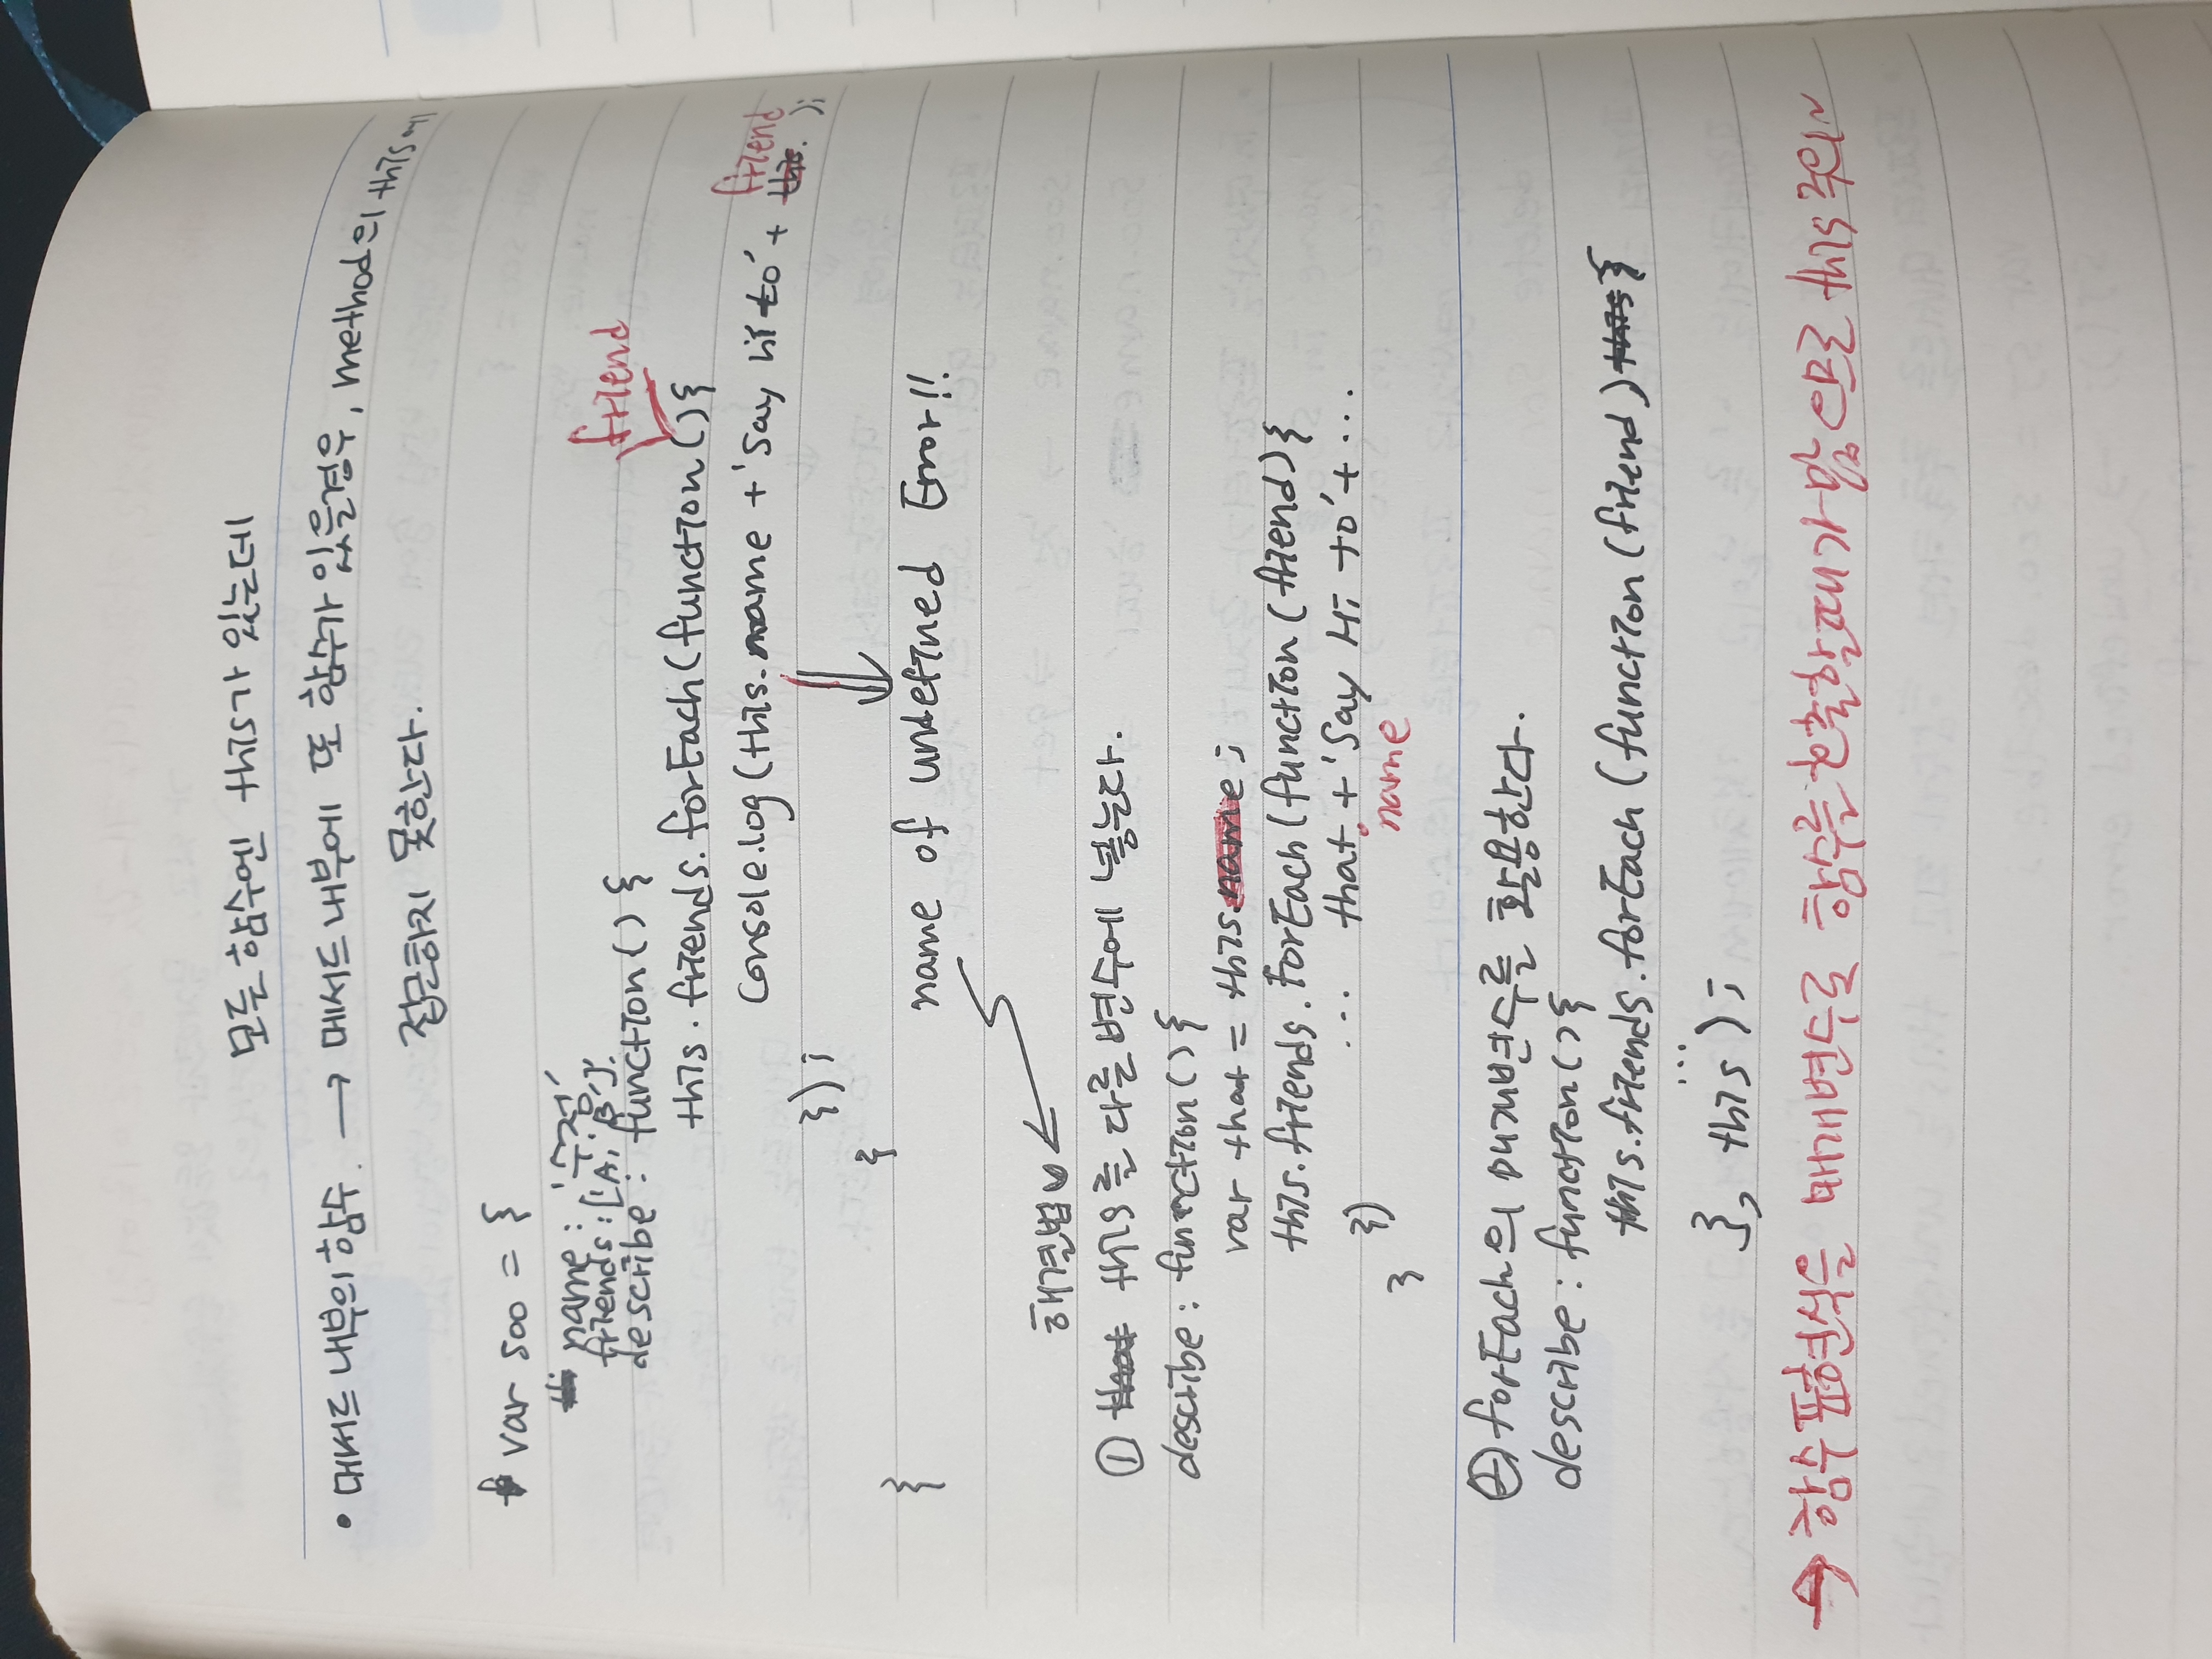 모든 함수엔 this가 있는데
• 메서드 내부의 함수. → 메서드 내부에 또 함수가 있을경우, method의 this에
접근하지 못한다.
var soo = {
name : '수정'
friends : ['A', 'B'].
describe : function () {
friend
this . friends. forEach (function () {
friend
Console.log (this. name + 'Say hi to' + this. );
}) ;
}
}
name of undefined Error!!
해결법
① that this를 다른 변수에 넣는다.
describe : function () {
var that = this.name ;
this.friends . forEach (function (friend) {
... that. + 'Say Hi to' + ...
name
})
}
② forEach의 매개변수를 활용한다.
describe : function () {
this.friends . forEach (function (friend) this {
...
}, this ) ;
→ 함수 표현식을 매개변수로 함수를 호출할때가 많으므로 this 주의~